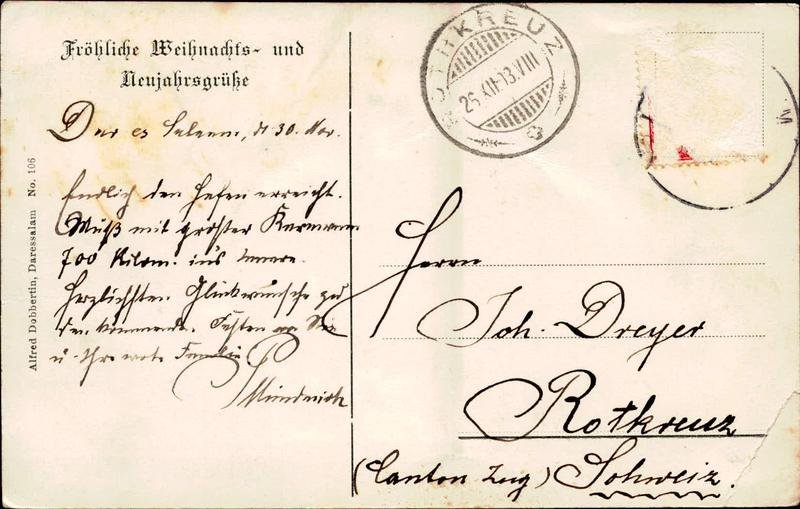 Fröhliche Weihnachts- und
Neujahrsgrüße
Dar es Salaam, d 30. Nov.
Endlich den Hafen erreicht.
Muß mit großer Karawane
700 Kilom. ins Innere.
Herzlichsten Glückwunsche zu
den kommende. Festen an Sie
u. Ihre werte Familie
Alfred Dobbertin, Daressalam No. 106
ROTHKREUZ
26.XII.13.VIII
M
Herrn
Joh. Dreyer
Rotkreuz
(Canton Zug) Schweiz.